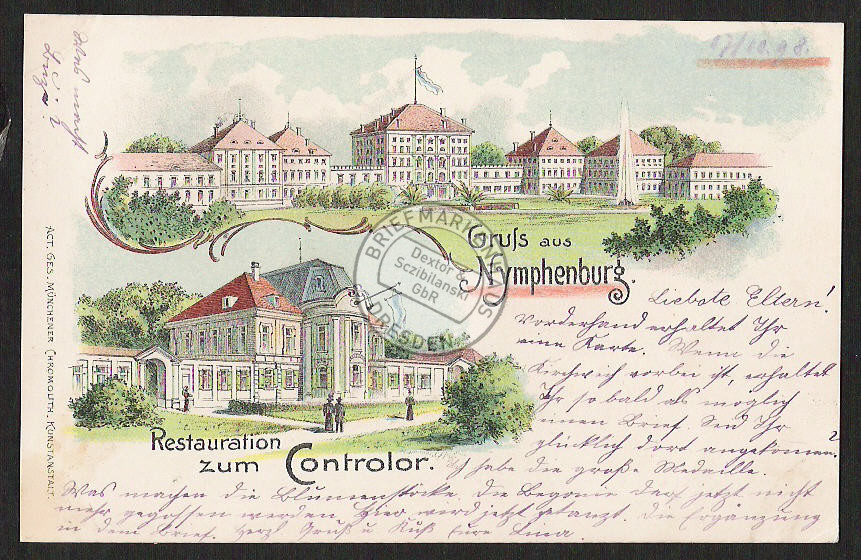 17/10.98.
Gruß aus
Nymphenburg.
BRIEFMARKENHAUS
Dextor &
Sczibilanski
GbR
DRESDEN
Restauration
zum Controlor.
ACT. GES. MÜNCHENER CHROMOLITH. KUNSTANSTALT.
Liebste Eltern!
Vorderhand erhaltet Ihr
eine Karte. Wenn die
Kirchweih vorbei ist, erhaltet
Ihr sobald als möglich
einen Brief. Seid Ihr
glücklich dort angekommen?
Ich habe die große Medaille.
Was machen die Blumenstöcke. Die Begonie darf jetzt nicht
mehr gegossen werden. Hier wird jetzt getanzt. Die Ergänzung
in dem Brief. Herzl. Gruß u. Kuß Eure Lina.